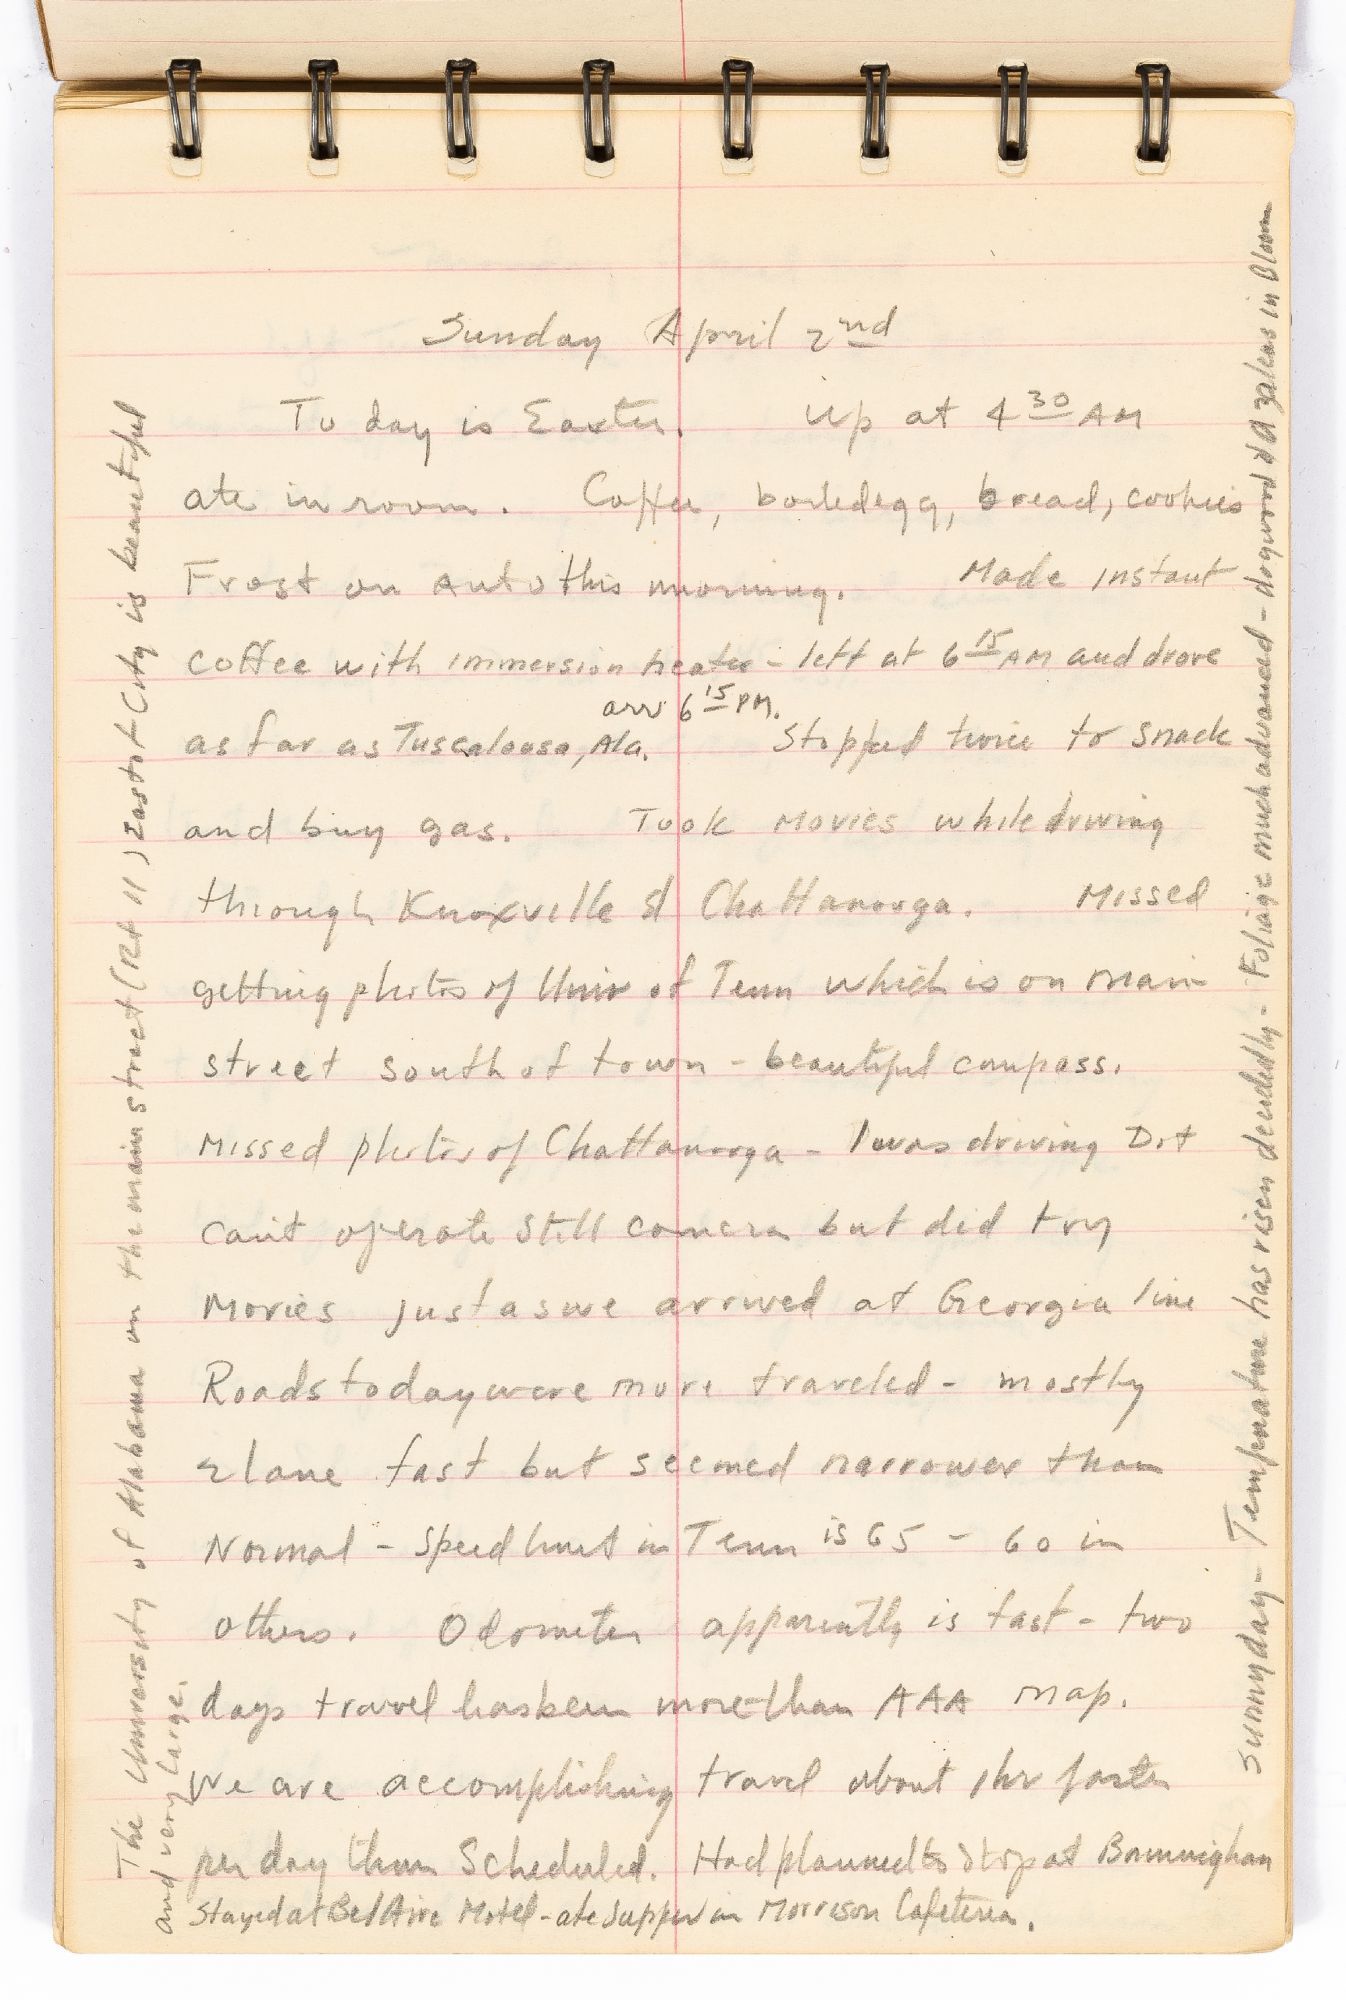 Sunday April 2nd
Today is Easter. Up at 4 30 AM
ate in room. Coffee, boiled egg, bread, cookies
Frost on Auto this morning. Made instant
coffee with immersion heater - left at 6 15 AM and drove
arr 6 15 PM.
as far as Tuscaloosa, Ala. Stopped twice to snack
and buy gas. Took movies while driving
through Knoxville & Chattanooga. Missed
getting photos of Univ of Tenn which is on main
street south of town - beautiful campass.
Missed photos of Chattanooga - I was driving Dot
can't operate still camera but did try
Movies just as we arrived at Georgia line
Roads today were more traveled - mostly
2 lane fast but seemed narrower than
Normal - speed limit in Tenn is 65 - 60 in
others. Odometer apparently is fast - two
days travel has been more than AAA map.
We are accomplishing travel about 1 hr faster
per day than Scheduled. Had planned to stop at Birmingham
Stayed at Bel Aire Motel - ate supper in Morrison Cafeteria.
The University of Alabama on the main street (Rt 11) East of City is beautiful
and very large.
Sunny day - Temperature has risen decidedly - Foliage much advanced - dogwood & Azaleas in Bloom